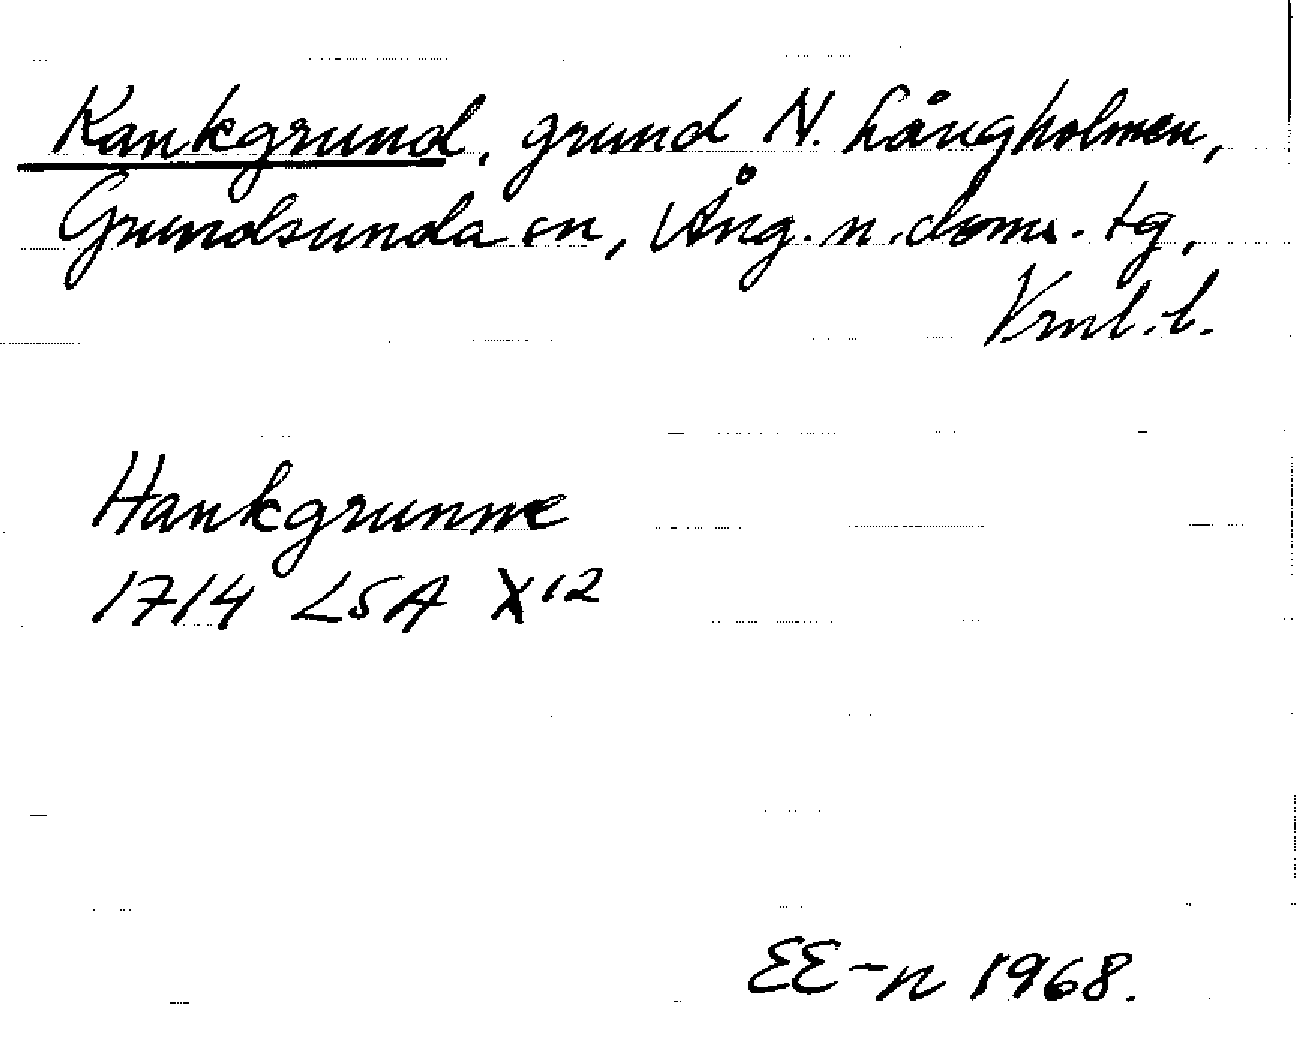 Kankgrund, grund N. Långholmen,
Grundsunda sn, Ång. n. doms. tg,
Vrml. l.
Hankgrunne
1714 LSA X 12
EE-n 1968.